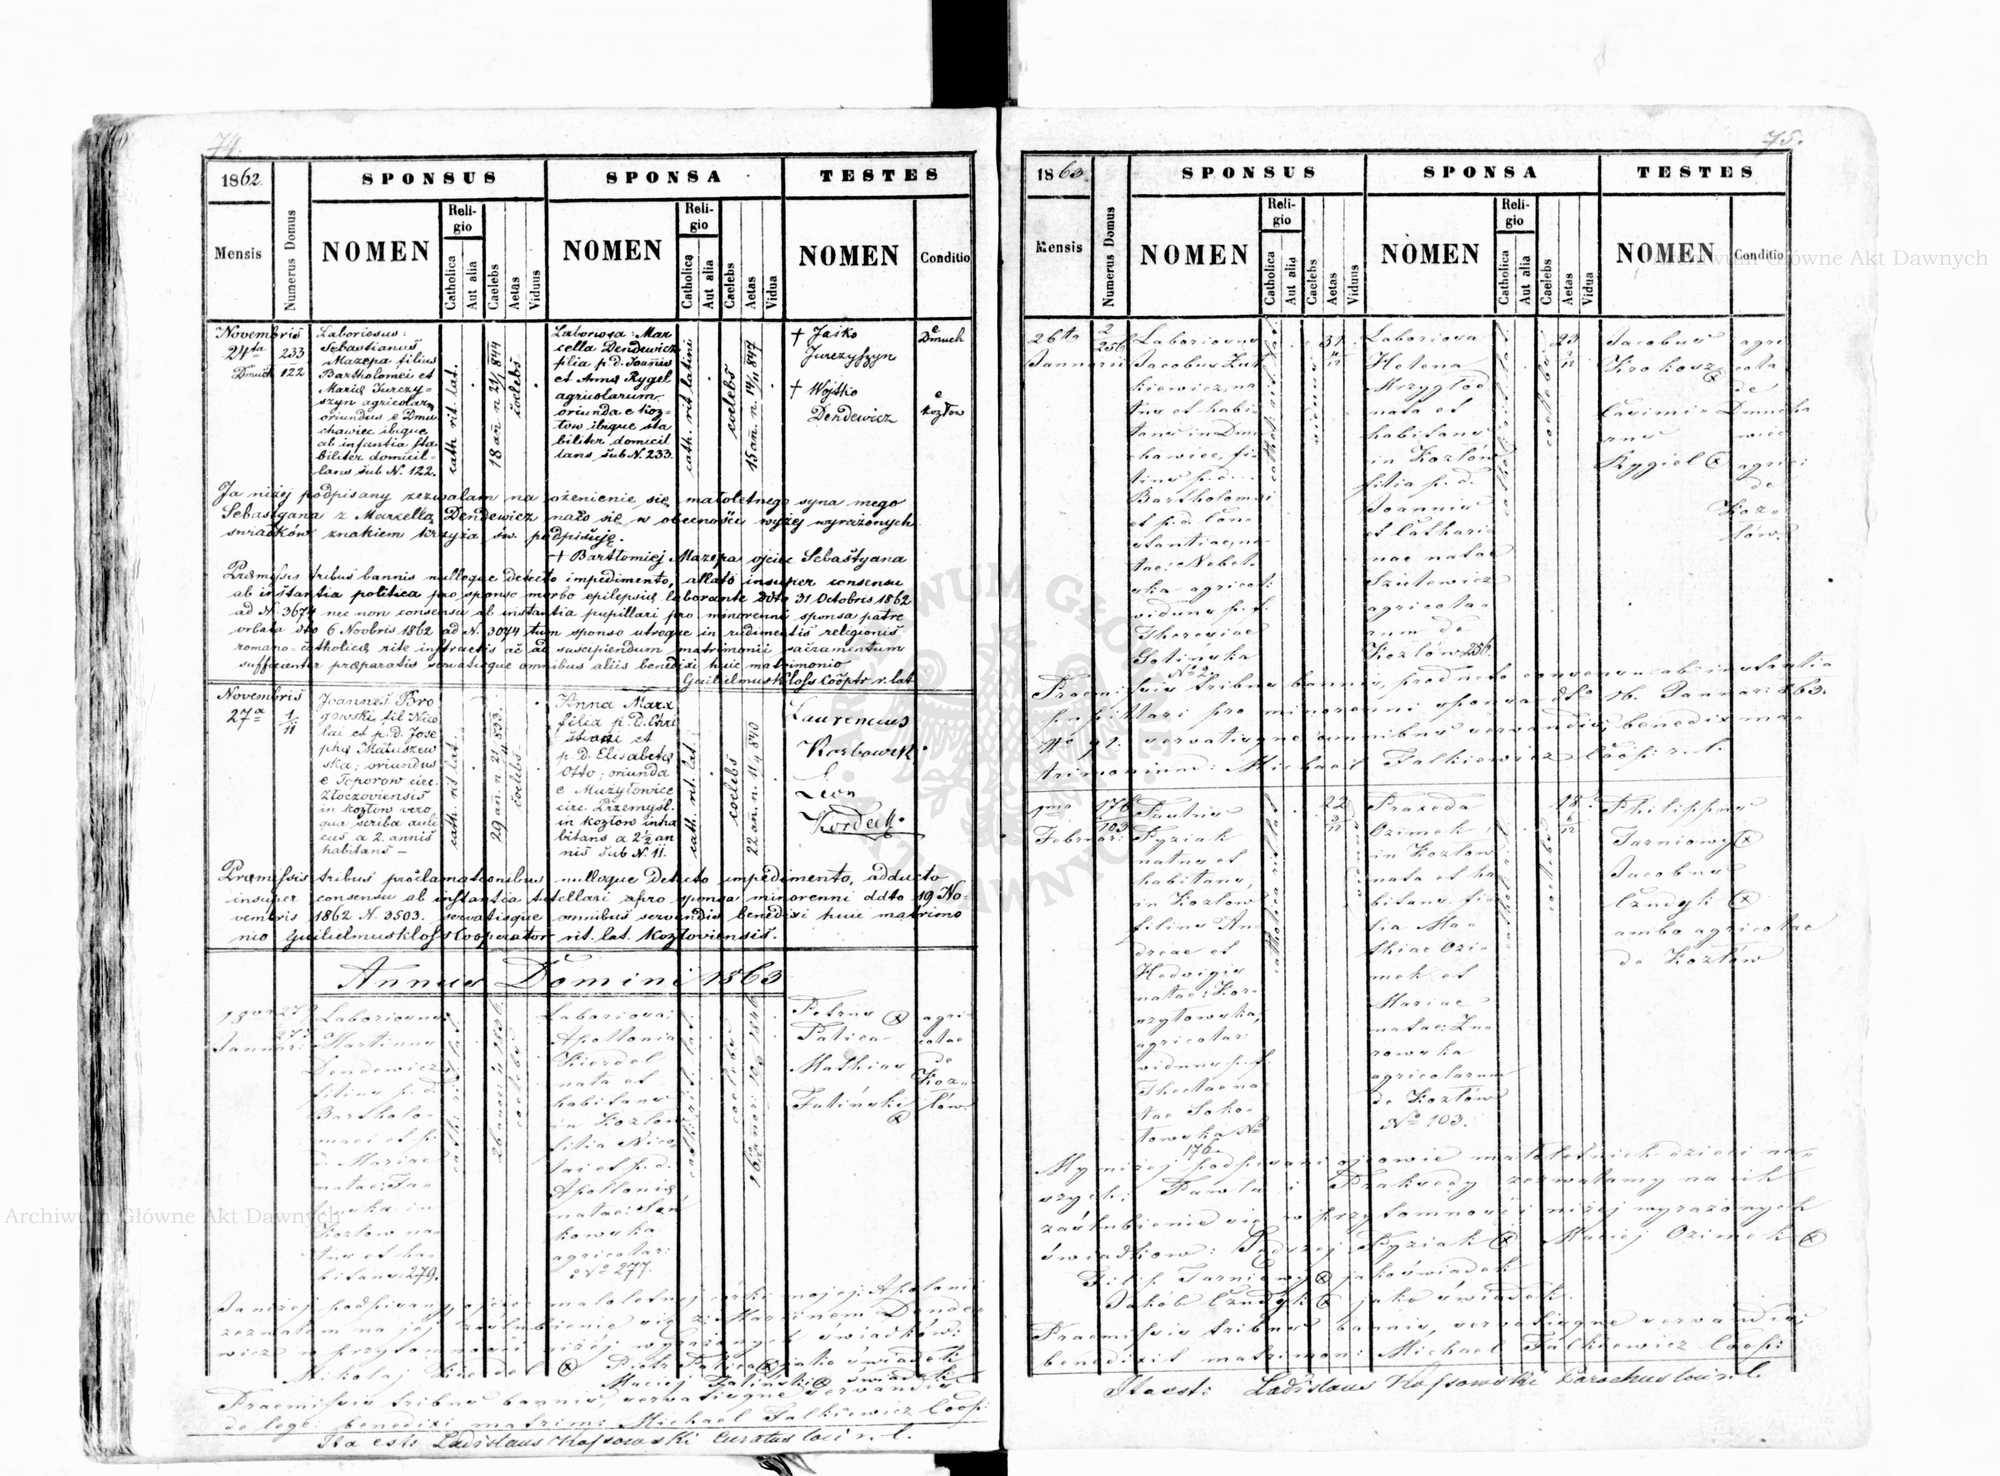 74.
1862.
SPONSUS
SPONSA
TESTES
Mensis
Numerus Domus
NOMEN
Religio
Catholica
Aut alia
Caelebs
Aetas
Viduus
NOMEN
Religio
Catholica
Aut alia
Caelebs
Aetas
Vidua
NOMEN
Conditio
Novembris
24ta
Dmuch
233
122
Laboriosus:
Sebastianus
Mazepa filius
Bartholomei et
Marię Jurczy=
szyn agricolarum
oriundus e Dmu
chawiec ibique
ab infantia sta
biliter domicil=
lans sub N. 122.
cath. rit. lat.
18 añ. n. 21/1 844
coelebs
Laboriosa: Mar
cella Dendewicz
filia p. d. Joañis
et Annę Rygel
agricolarum
oriunda e Koz=
tow ibique sta
biliter domicil
lans sub N. 233.
cath. rit latini
coelebs
15 añ. n. 14/11 847
+ Jaśko
Jurczyszyn
+ Wojtko
Dendewicz
e
Dmuch
e
Kozłow
Ja niżej podpisany zezwalam na ożenienie się małoletnego syna mego
Sebastyana z Marcellą Dendewicz nało się w obecności wyżej wyrażonych
swiadków znakiem krzyża św. podpisuję.
+ Bartłomiej Mazepa ojciec Sebastyana
Pręmissis tribus bannis nulloque detecto impedimento, allato insuper consensu
ab instantia politica pro sponso morbo epilepsię laborante ddto 31 Octobris 1862
ad N. 3674 nec non consensu ab instantia pupillari pro minorenni sponsa patre
orbata dto 6 Noobris 1862 ad N. 3074 tum sponso utroque in rudimentis religionis
romano-catholicę rite instructis ac ad suscipiendum matrimonii sacramentum
sufficienter pręparatis servatisque omnibus aliis benedixi huic matrimonio
Guilielmus Kloss Coöptr r. lat.
Novembris
27a
1/11
Joannes Bro
gowski fil Nico
lai et p. D. Jose
phę Matuszew
ska; oriundus
e Toporow circ.
Złoczoviensis
in Kozłow vero
qua scriba auli
cus a 2. annis
habitans —
cath. rit lat.
29 añ. n. 21/4 833.
coelebs
Anna Marx
filia p. D. Chri
stiani et
p. D. Elisabetę
Otto; oriunda
e Mużyłowice
circ. Przemysl.
in Kozłow inha
bitans a 2½ an
nis sub N. 11.
cath. rit. lat.
coelebs
22 añ. n. 11/9 840
Laurencius
Karbowski
Leon
Kordecki
Pręmissis tribus proclamationibus nulloque detecto impedimento, adducto
insuper consensu ab instantia tutellari apro sponsa minorenni ddto 19 No=
vembris 1862 N. 3503. servatisque omnibus servandis benedixi huic matrimo
nio Guilielmus Kloss Coöperator rit. lat. Kozłoviensis.
Annus Domini 1863
Januar:
Laboriosus
Martinus
Dendewicz
filius p. d.
Bartholo=
maei et p.
d. Mariae
natae:
in
Kozłow na=
tus et ha=
bitans: 279.
coelebs
Laboriosa:
Apollonia
Kierdel
nata et
habitans
in Kozłow
filia Nico
lai et p. d.
Apollonię
natae:
kowska
agricolar:
No 277.
coelebs
Petrus
Patica
Mathias
Fatiński
agri=
colae
de
Koz=
łow
Ja niżej podpisany ojciec małoletnej córki mojej: Apolonii
zezwalam na jej zaślubienie się z: Marcinem Dende
wicz w przytomności niżej wyrażonych świadków:
Mikołaj Kierdel Piotr Patica jako świadek
Maciej Fatiński świadek
Praemissis tribus bannis, servatisque servandis
de lege: benedixi matrim: Michael Falkiewicz Coop:
Ita est: Ladislaus Kossowski Curatus loci r. l.
75.
1863.
SPONSUS
SPONSA
TESTES
Mensis
Numerus Domus
NOMEN
Religio
Catholica
Aut alia
Caelebs
Aetas
Viduus
NOMEN
Religio
Catholica
Aut alia
Caelebs
Aetas
Vidua
NOMEN
Conditio
26ta
Januarii
2
256
Laboriosus
Jacobus Zut
kiewicz, na
tus et habi=
tans in Dmu
chawiec, fi=
lius p. d.
Bartholomæi
et p. d. Con=
stantiae, na=
tae: Nebel=
ska agricol:
viduus p. f.
Theresiae
Gotińska
No 2.
viduus
31
Laboriosa
Helena
Mrzygłod
nata et
habitans
in Kozłow
filia p. d.
Joannis
et Cathari=
nae natae
Szutewicz
agricola=
rum de
Kozłow 256.
coelebs
23
Jacobus
Krokosz
Casimir=
rus
Rygiel
agri
cola
de
Dmucha
wiec
agric:
de
Koz=
łow.
Praemissis tribus bannis, producto consensu ab instantia
pupillari pro minorenni sponsa ddo 16. Januar: 863.
No 91. servatisque omnibus servandis, benedixi ma=
trimonium: Michael Falkiewicz Coop: r. l.
9ma
Februar:
176
103
Paulus
Pyziak
natus et
habitans,
in Kozłow
filius An=
dreae et
Hedvigis
natae: Kor=
czytowska,
agricolar:
viduus p. f.
Theclae na=
tae Soko=
łowska No
176.
catholica rit. lat.
viduus
22
Praxeda
Ozimek
in Kozłow
nata et ha=
bitans, fi=
lia Ma=
thiae Ozi=
mek et
Mariae
natae: Zu=
rowska
agricolarum
de Kozłow
No 103.
coelebs
18
Philippus
Tarniowy
Jacobus
Czudyk
ambo agricolae
de Kozłów
My niżej podpisani ojcowie małoletnich dzieci na=
szych: Pawła i Praksedy zezwalamy na ich
zaślubienie się w przytomności niżej wyrażonych
świadkow: Jędrzej Pyziak Maciej Ozimek
Filip Tarniowy jako świadek
Jakób Czudyk jako świadek.
Praemissis tribus bannis, servatisque servandis
benedixit matrimon: Michael Falkiewicz Coop:
Ita est: Ladislaus Kossowski Parochus loci r. l.
Archiwum Główne Akt Dawnych
Archiwum Główne Akt Dawnych
ARCHIWUM GŁÓWNE AKT DAWNYCH